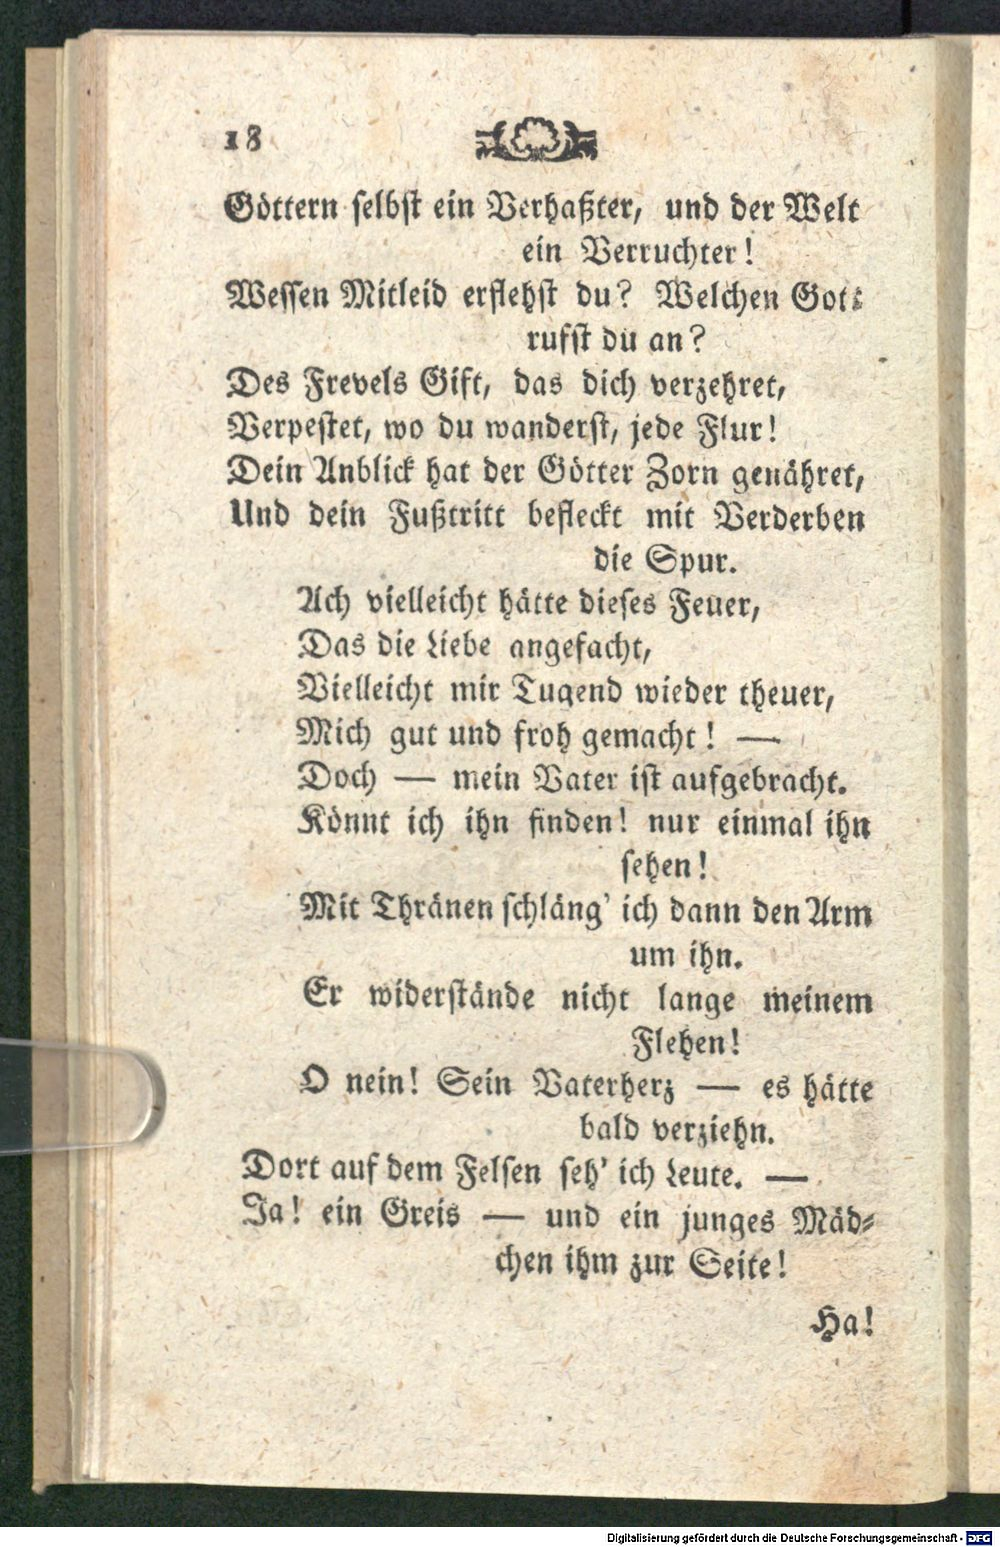 18
Göttern selbst ein Verhaßter, und der Welt
ein Verruchter!
Wessen Mitleid erflehst du? Welchen Gott
rufst du an?
Des Frevels Gift, das dich verzehret,
Verpestet, wo du wanderst, jede Flur!
Dein Anblick hat der Götter Zorn genähret,
Und dein Fußtritt befleckt mit Verderben
die Spur.
Ach vielleicht hätte dieses Feuer,
Das die Liebe angefacht,
Vielleicht mir Tugend wieder theuer,
Mich gut und froh gemacht! —
Doch — mein Vater ist aufgebracht.
Könnt ich ihn finden! nur einmal ihn
sehen!
Mit Thränen schläng' ich dann den Arm
um ihn.
Er widerstände nicht lange meinem
Flehen!
O nein! Sein Vaterherz — es hätte
bald verziehn.
Dort auf dem Felsen seh' ich Leute. —
Ja! ein Greis — und ein junges Mäd-
chen ihm zur Seite!
Ha!
Digitalisierung gefördert durch die Deutsche Forschungsgemeinschaft - DFG